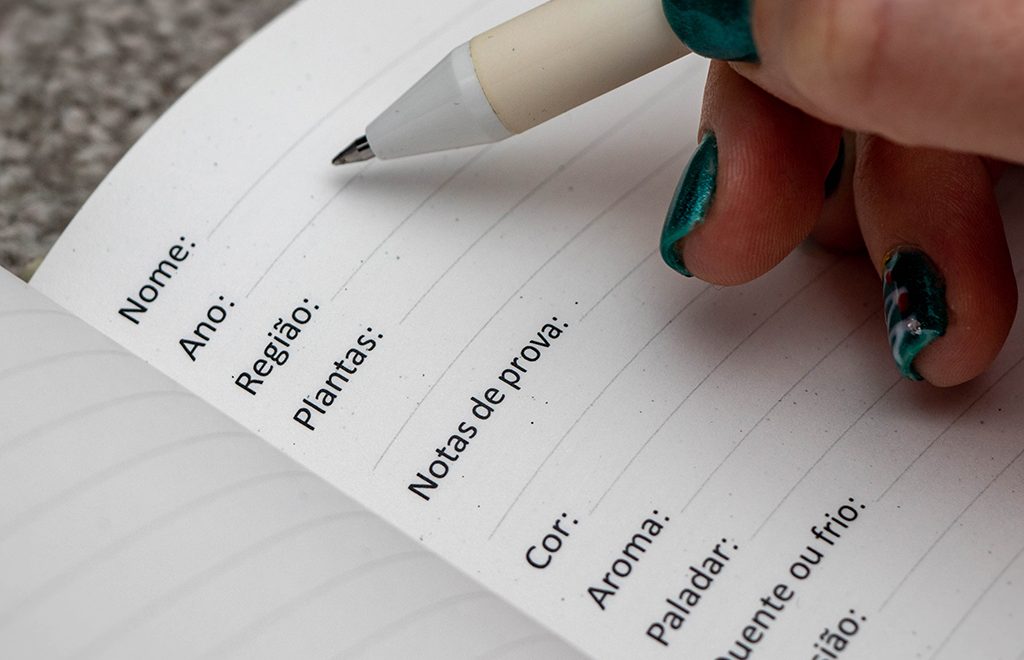 Nome:
Ano:
Região:
Plantas:
Notas de prova:
Cor:
Aroma:
Paladar:
ou frio: